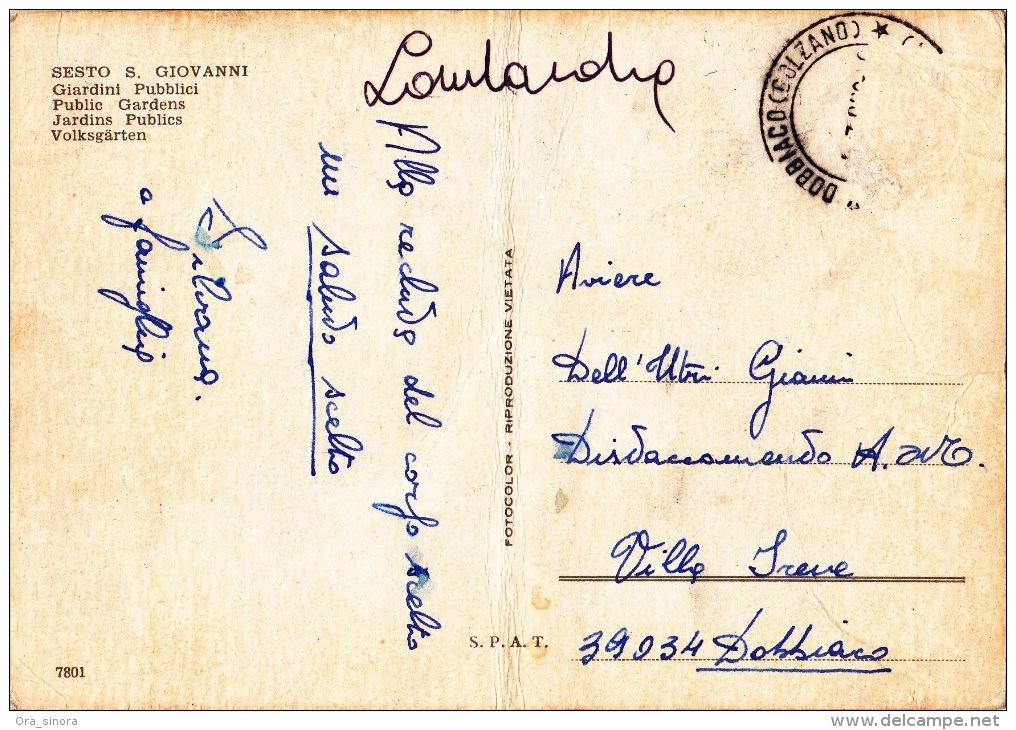 SESTO S. GIOVANNI
Giardini Pubblici
Public Gardens
Jardins Publics
Volksgärten
Lombardia
DOBBIACO (BOLZANO)
Alla recluta del corpo scelto
un saluto scelto
Silvana.
a famiglia
FOTOCOLOR - RIPRODUZIONE VIETATA
Aviere
Dell'Utri Gianni
Distaccamento A.
Villa Irene
39034 Dobbiaco
S. P. A. T.
7801
Ora_sinora
delcampe.net